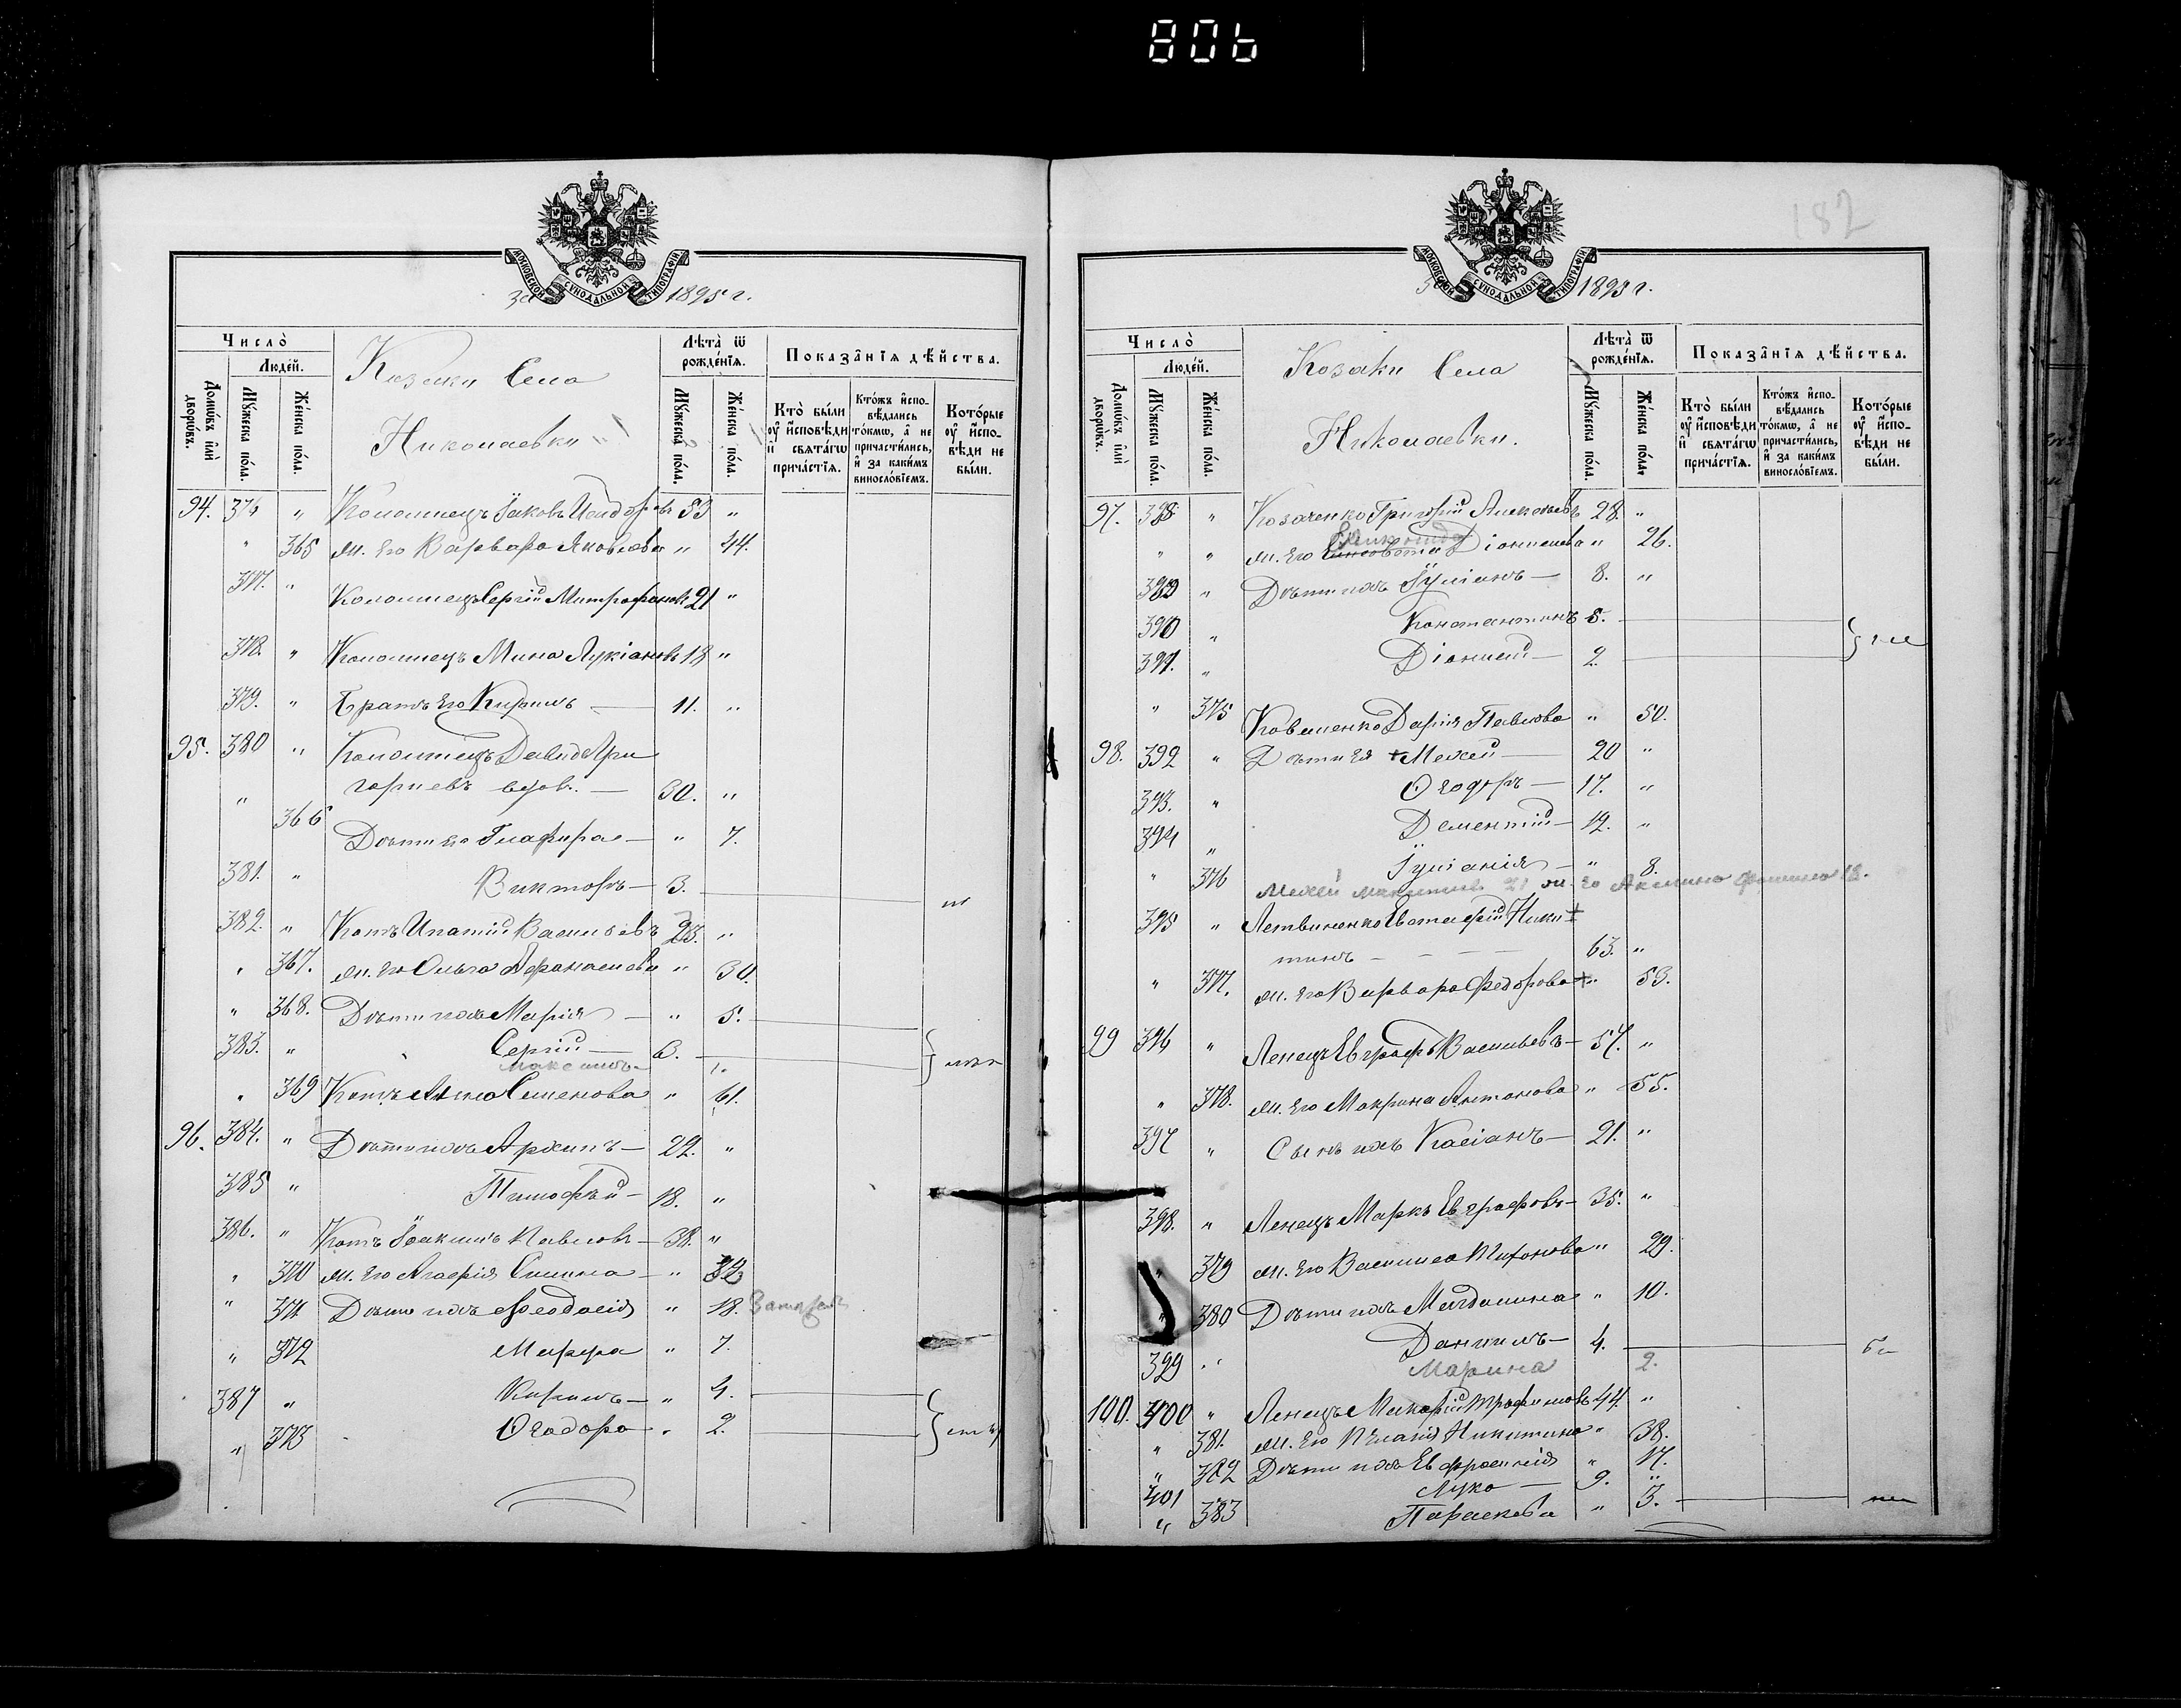 806
182
МОСКОВСКОЙ СѴНОДАЛЬНОЙ ТИПОГРАФІИ
за 1895 г.
Число̀
Людей.
Домѡвъ и҆лѝ дворѡвъ.
Мꙋжеска пола.
Женска пола.
Козаки Села
Николаевки
Лѣта̀ ѿ рожденїѧ.
Мꙋжеска пола.
Женска пола.
Показанїѧ дѣйства.
Кто̀ были оу҆ и҆сповѣди и҆ свѧтагѡ причастїѧ.
Ктожъ и҆сповѣдались токмѡ, а҆ не причастились, и҆ за какимъ винословїемъ.
Которые оу҆ и҆сповѣди не были.
94. 376 " Коломиецъ Іаковъ Исидоровъ 53 "
" 365 ж. его Варвара Яковлева " 44.
377. " Коломиецъ Сергій Митрофановъ 21 "
378. " Коломиецъ Мина Лукіановъ 18 "
379. " Братъ его Кирилъ — 11. "
95. 380 " Коломиецъ Давидъ Гри
горiевъ вдов. — 30. "
" 366 Дѣти его Глафира — " 7.
381. " Викторъ — 3.
382. " Котъ Ипатій Васильевъ 23. "
" 367. ж. его Ольга Афанасиева " 30.
" 368. Дѣти ихъ Марія — " 5.
383. " Сергій — 3.
Максимъ
" 369 Котъ Анна Семенова " 61.
96. 384. " Дѣти ихъ Архипъ — 22. "
385 " Тимофѣй — 18. "
386. " Котъ Іоакимъ Павловъ — 38. "
" 370 ж. его Агафія Силина — " 32
" 371 Дѣти ихъ Феодосія " 18.
" 372 Марфа " 7.
387 " Кирилъ — " 4.
" 373 Ѳеодора — " 2.
МОСКОВСКОЙ СѴНОДАЛЬНОЙ ТИПОГРАФІИ
за 1895 г.
Число̀
Людей.
Домѡвъ и҆лѝ дворѡвъ.
Мꙋжеска пола.
Женска пола.
Козаки Села
Николаевки.
Лѣта̀ ѿ рожденїѧ.
Мꙋжеска пола.
Женска пола.
Показанїѧ дѣйства.
Кто̀ были оу҆ и҆сповѣди и҆ свѧтагѡ причастїѧ.
Ктожъ и҆сповѣдались токмѡ, а҆ не причастились, и҆ за какимъ винословїемъ.
Которые оу҆ и҆сповѣди не были.
97. 388 " Козаченко Григорій Алексѣевъ 28. "
" " ж. его Діонисіева " 26.
389 " Дѣти ихъ Іуліанъ — 8. "
390 " Константинъ 5.
391. " Діонисій — 2.
" 375 Коваленко Дарія Павлова " 50.
98. 392 " Дѣти ея + Мокей — 20 "
393. " Ѳеодоръ — 17. "
394 " Дементій — 12. "
" 376 Іуліанія — " 8.
395 " Летвиненко Евстафій Ники +
тинъ — 63. "
" 377. ж. его Варвара Федорова + " 53.
99 396 " Ленецъ Евграфъ Васильевъ — 57. "
" 378. ж. его Макрина Антонова " 55.
397 " Сынъ ихъ Касіанъ — 21. "
398. " Ленецъ Маркъ Евграфовъ — 35. "
" 379 ж. его Василиса Тихонова " 29.
" 380 Дѣти ихъ Магдалина " 10.
399 " Даниилъ — 4.
Марина 2.
100. 400 " Ленецъ Макарій Трофимовъ 44. "
" 381. ж. его Пелагія Никитина " 38.
" 382 Дѣти ихъ Евфросинія " 17.
401 Лука — 9. "
" 383 Параскева " 3.